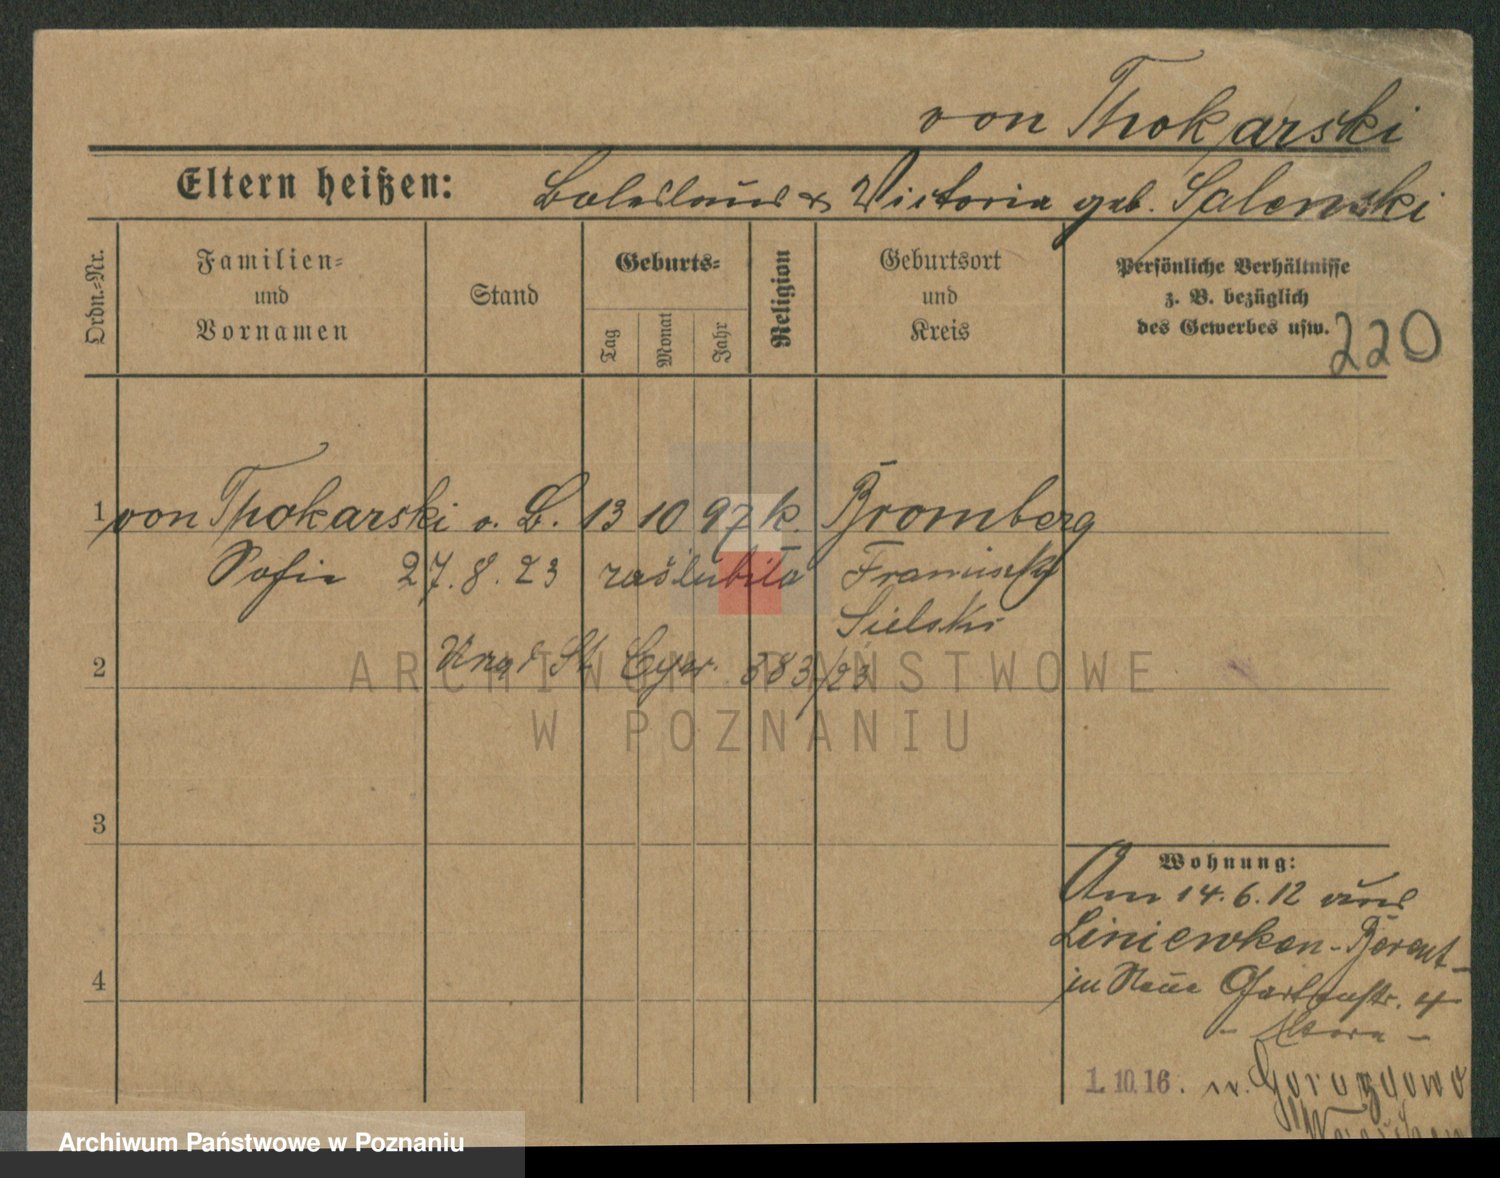 von Thokarski
Eltern heißen: Boleslaus & Victoria geb. Salenski
Ordn.-Nr.
Familien-
und
Vornamen
Stand
Geburts-
Tag
Monat
Jahr
Religion
Geburtsort
und
Kreis
Persönliche Verhältnisse
z. B. bezüglich
des Gewerbes usw.
220
1 von Thokarski o. B. 13 10 97 k. Bromberg
Sofie 27.8.23 zaślubiła Franciszka
Sielski
2 Urząd St. Cyw. 383/23
3
4
Wohnung:
Am 14.6.12 aus
Liniewken-Berent-
in Neue Gartenstr. 4
1.10.16. n.
ARCHIWUM PAŃSTWOWE
W POZNANIU
Archiwum Państwowe w Poznaniu